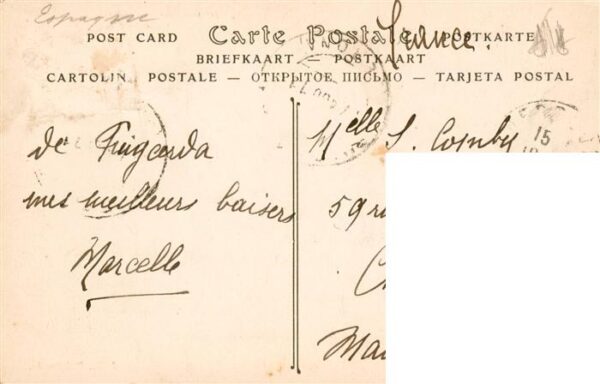 Espagne
France.
POST CARD Carte Postale POSTKARTE
BRIEFKAART — POSTKAART
CARTOLIN POSTALE — ОТКРЫТОЕ ПИСЬМО — TARJETA POSTAL
de Puigcerda
mes meilleurs baisers
Marcelle
Melle S.
59
15